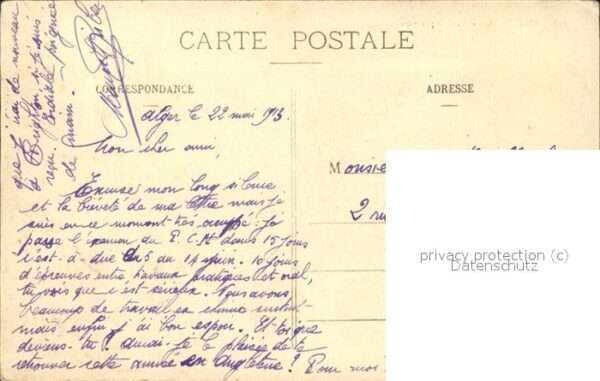 CARTE POSTALE
CORRESPONDANCE
ADRESSE
Alger le 22 mai 1913.
Mon cher ami,
Excuse mon long silence
et la brièveté de ma lettre mais je
suis en ce moment très occupé : je
passe l'examen du P.C.N dans 15 jours
c'est-à-dire du 5 au 14 juin. 10 jours
d'épreuves entre travaux pratiques et oral,
tu vois que c'est sérieux. Nous avons
beaucoup de travail en chimie surtout
mais enfin j'ai bon espoir. Et toi que
deviens-tu ? Aurai-je le plaisir de te
retrouver cette année en Angleterre ? Pour moi
que j'irai de nouveau
à Brighton si je suis
reçu. Cordiale poignée
de main.
Monsie
2 ru
privacy protection (c)
Datenschutz